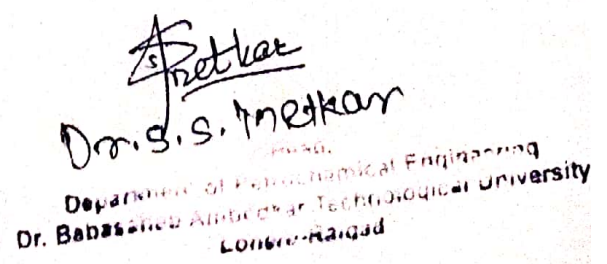 Dr. S. S. Metkar
Head,
Department of Petrochemical Engineering
Dr. Babasaheb Ambedkar Technological University
Lonere-Raigad